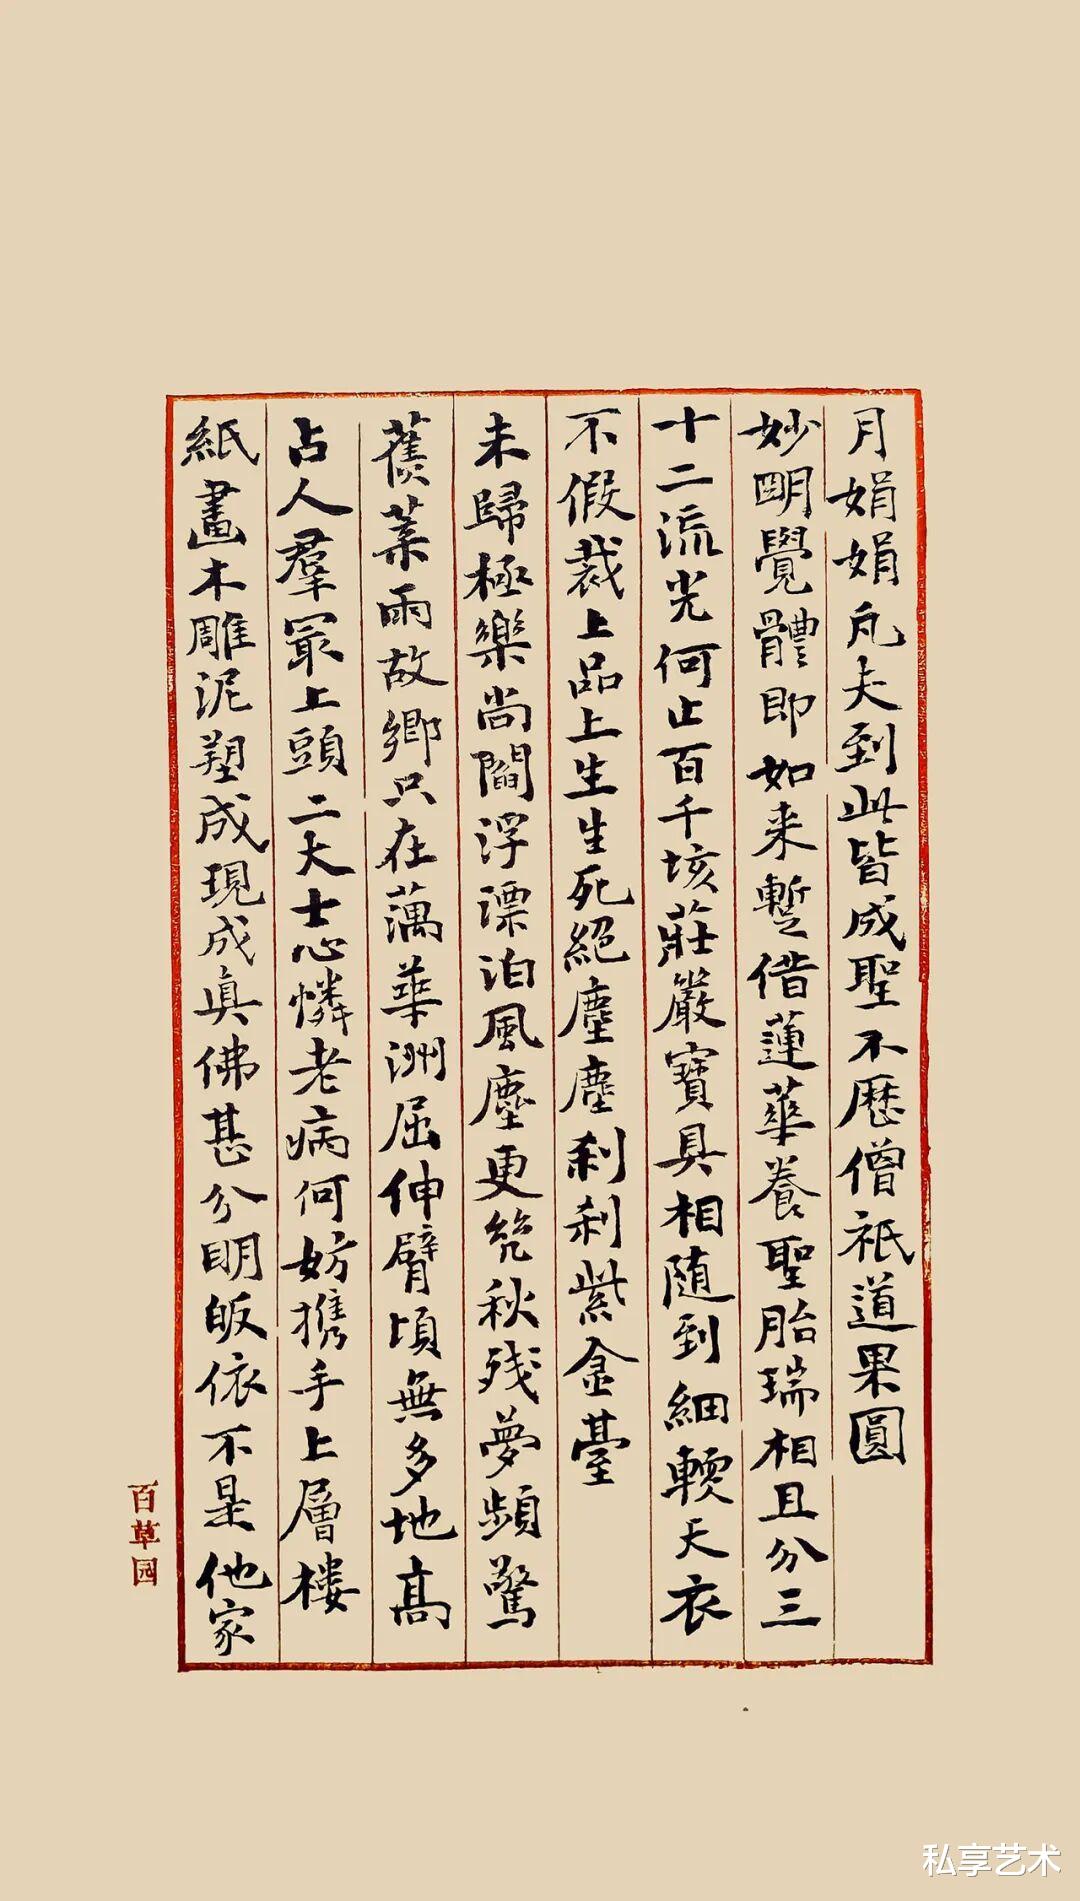 月娟娟凡夫到此皆成聖不歷僧祇道果圓
妙明覺體即如来蹔借蓮華養聖胎瑞相且分三
十二流光何止百千垓莊嚴寶具相隨到細輭天衣
不假裁上品上生生死絕塵塵刹刹紫金臺
未歸極樂尚閻浮漂泊風塵更幾秋殘夢頻驚
蕉葉雨故鄉只在藕華洲屈伸臂頃無多地高
占人羣冣上頭二大士心憐老病何妨攜手上層樓
紙畫木雕泥塑成現成真佛甚分明皈依不是他家
百草园
私享艺术